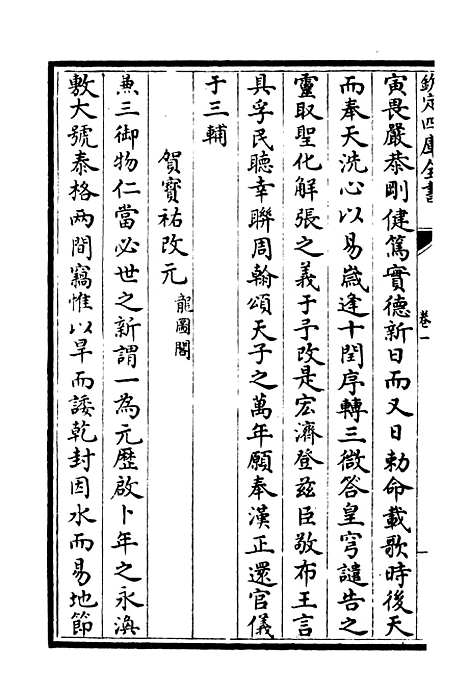 欽定四庫全書
卷一
寅畏嚴恭剛健篤實德新日而又日勅命載歌時後天
而奉天洗心以易歲逢十閏序轉三微答皇穹譴告之
靈取聖化解張之義于予改是宏濟登兹臣敬布王言
具孚民聽幸聯周翰頌天子之萬年願奉漢正還官儀
于三輔
賀寳祐改元龍圖閣
兼三御物仁當必世之新謂一為元歷啟卜年之永渙
敷大號泰格兩間竊惟以旱而諉乾封因水而易地節